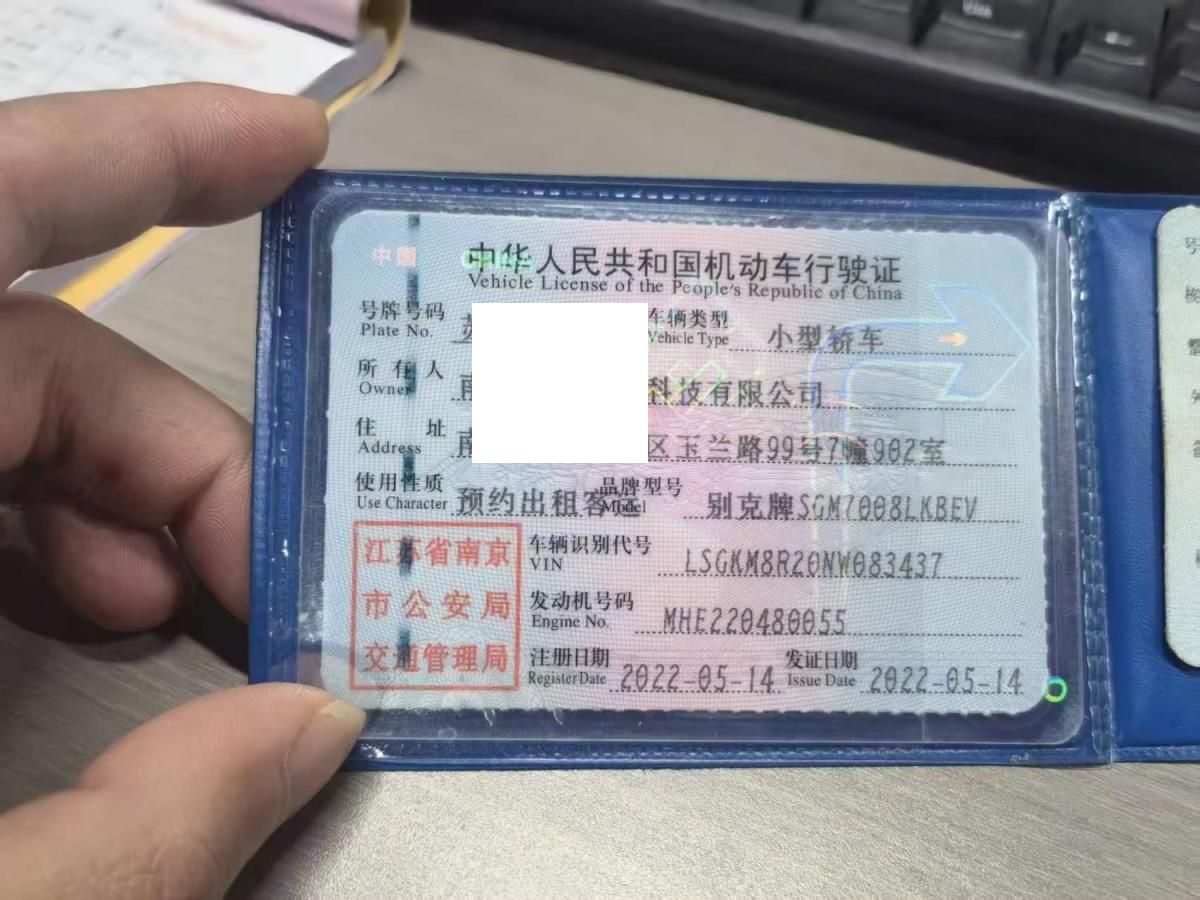 中国
中华人民共和国机动车行驶证
Vehicle License of the People's Republic of China
号牌号码 苏 车辆类型 小型轿车
Plate No. Vehicle Type
所有人 科技有限公司
Owner
住址 区玉兰路99号7幢902室
Address
使用性质 预约出租客运 品牌型号 别克牌SGM7008LKBEV
Use Character Model
江苏省南京
市公安局
交通管理局
车辆识别代号 LSGKM8R20NW083437
VIN
发动机号码 MHE220480055
Engine No.
注册日期 2022-05-14 发证日期 2022-05-14
Register Date Issue Date